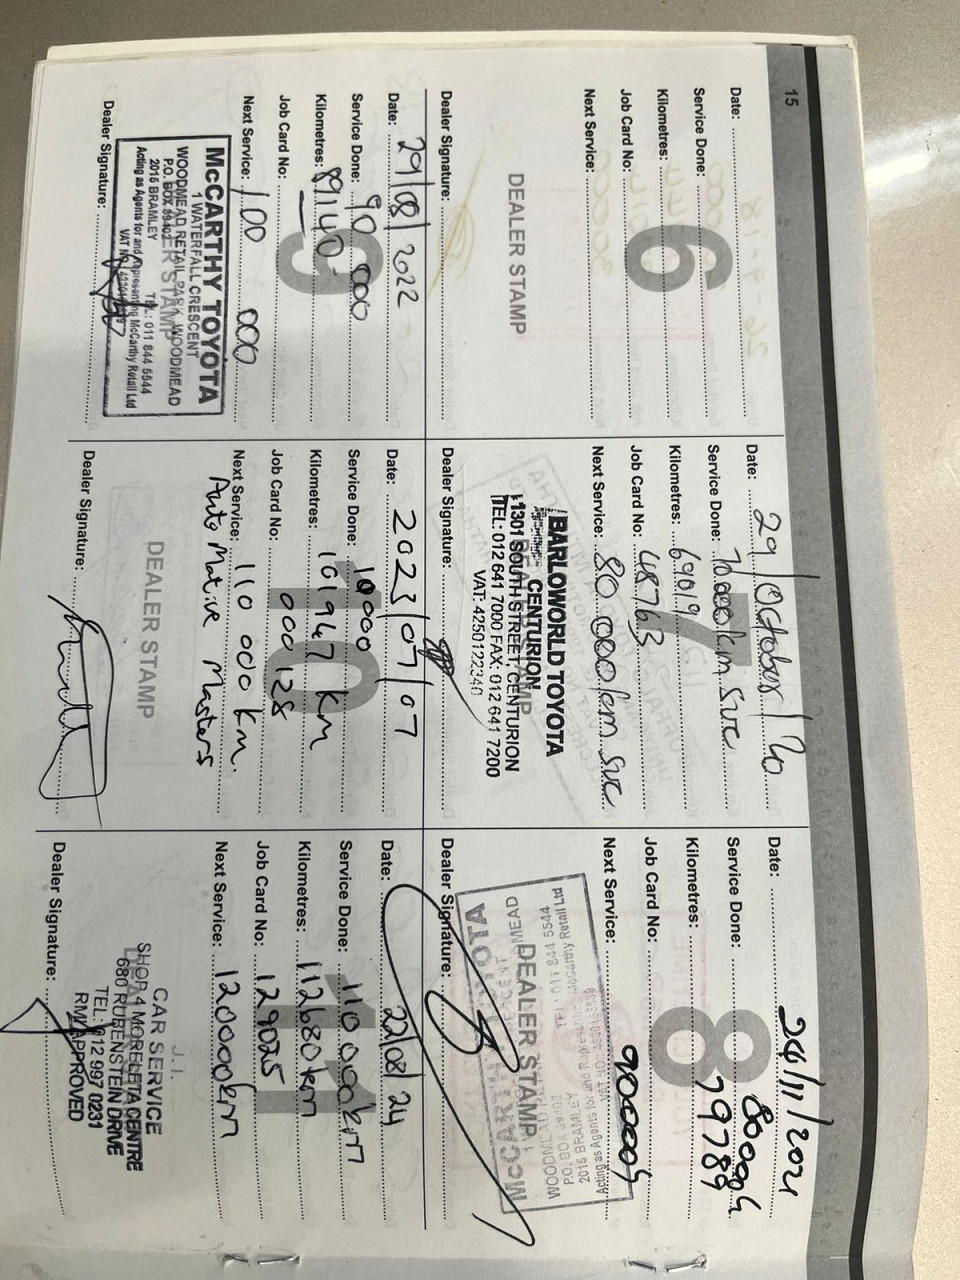 15
6
Date:
Service Done:
Kilometres:
Job Card No:
Next Service:
DEALER STAMP
Dealer Signature:
7
Date: 29/October/20
Service Done: 70 000km SVC
Kilometres: 69019
Job Card No: 48763
Next Service: 80 000km SVC
DEALER STAMP
BARLOWORLD TOYOTA
CENTURION
1301 SOUTH STREET, CENTURION
TEL: 012 641 7000 FAX: 012 641 7200
VAT: 4250122340
Dealer Signature:
8
Date: 24/11/2021
Service Done: 80000
Kilometres: 79789
Job Card No:
Next Service: 90000
DEALER STAMP
MCCARTHY TOYOTA
2015 BRAMLEY
Dealer Signature:
9
Date: 29/08/2022
Service Done: 90 000
Kilometres: 89140
Job Card No:
Next Service: 100 000
DEALER STAMP
McCARTHY TOYOTA
1 WATERFALL CRESCENT
WOODMEAD RETAIL PARK, WOODMEAD
P.O. BOX
2015 BRAMLEY TEL: 011 844 5544
Acting as Agents for and representing McCarthy Retail Ltd
VAT No.
Dealer Signature:
10
Date: 2023/07/07
Service Done: 10000
Kilometres: 101947 km
Job Card No: 000128
Next Service: 110 000 km.
Auto Motive Masters
DEALER STAMP
Dealer Signature:
11
Date: 22/08/24
Service Done: 110 000km
Kilometres: 112680km
Job Card No: 129025
Next Service: 120000km
J.I.
CAR SERVICE
SHOP 4 MORELETA CENTRE
680 RUBENSTEIN DRIVE
TEL: 012 997 0231
RMI APPROVED
Dealer Signature: